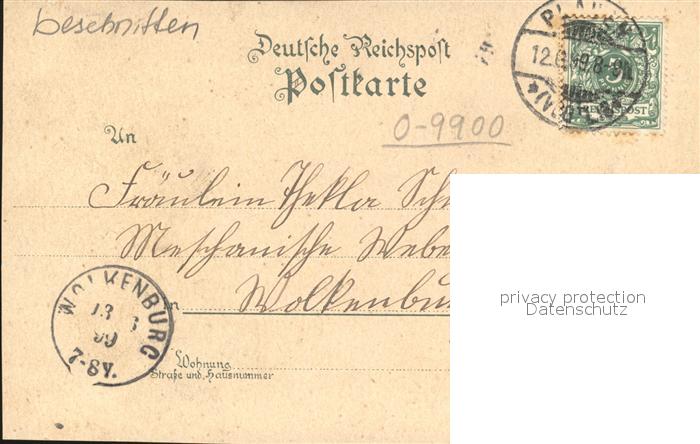 beschnitten
Deutsche Reichspost
Postkarte
PLAUEN
12.6.99.8-9N
*(VOGTL.)*
5
REICHSPOST
O-9900
An
Fräulein Thekla Sch
Meschanische Webe
in Wolkenbu
WOLKENBURG
13 6
99
7-8V.
Wohnung
Straße und Hausnummer
privacy protection
Datenschutz